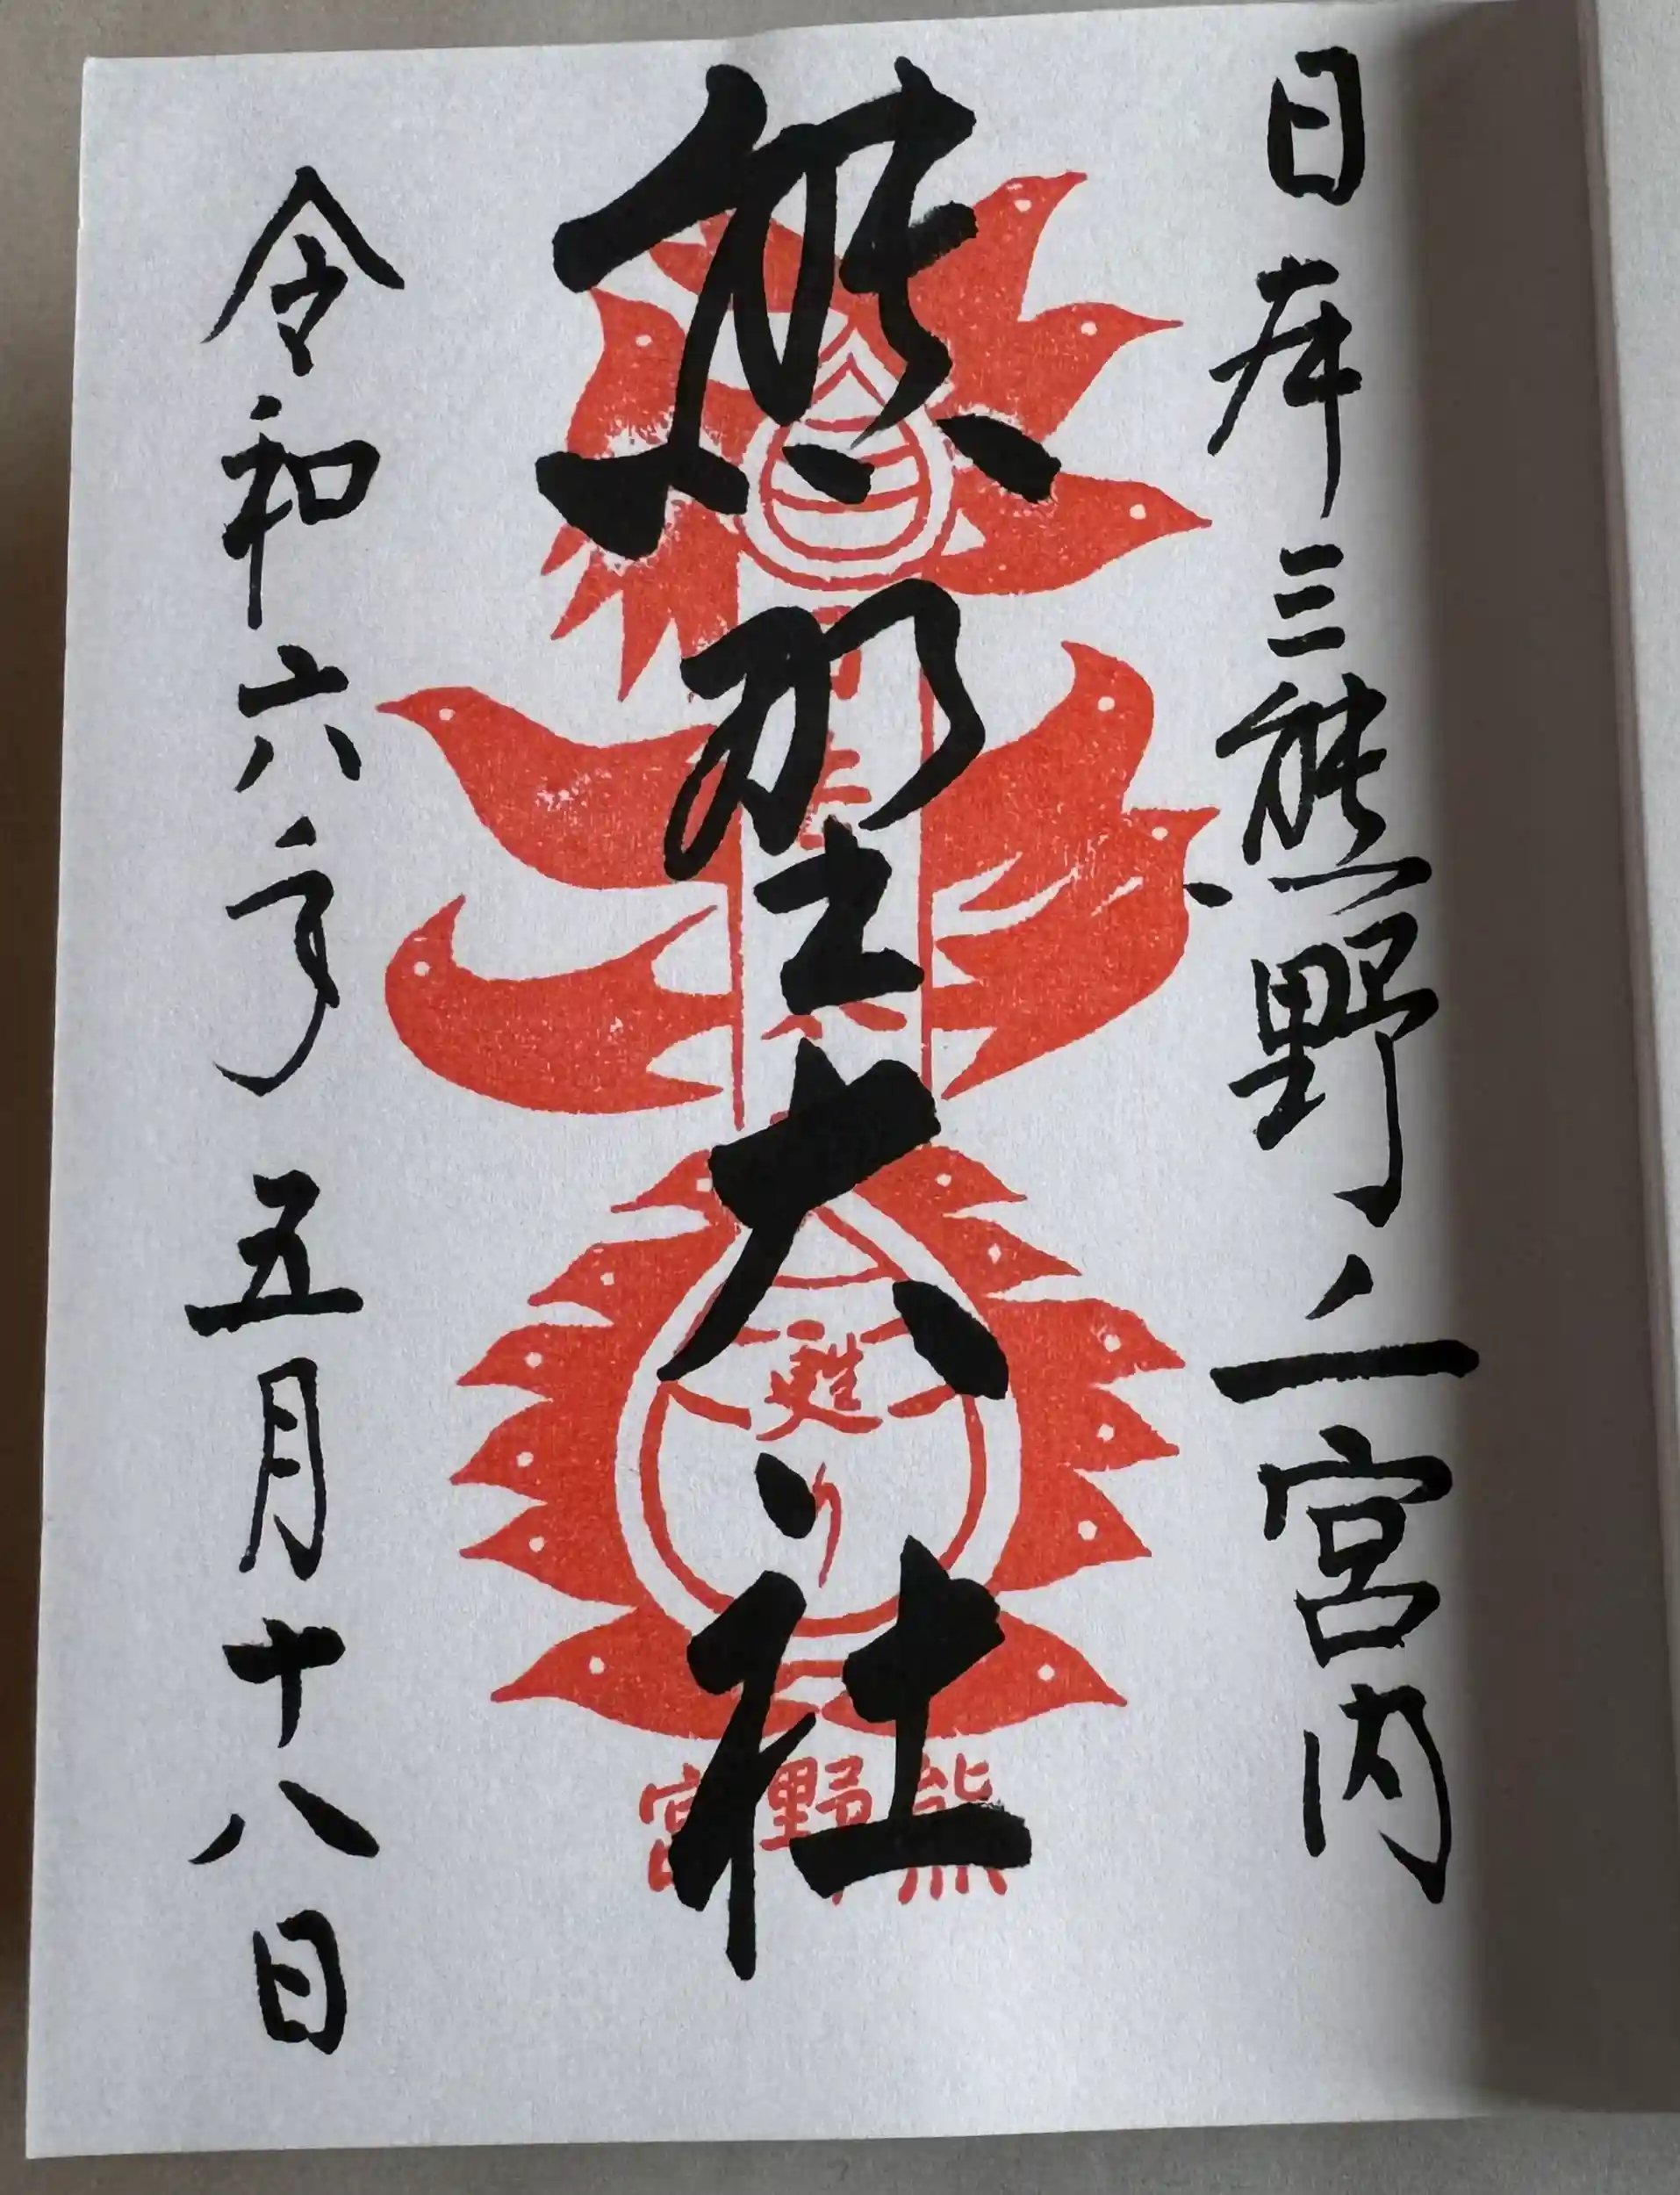 日本三熊野之一宮内
熊野大社
令和六年五月十八日
甦り
熊野宮